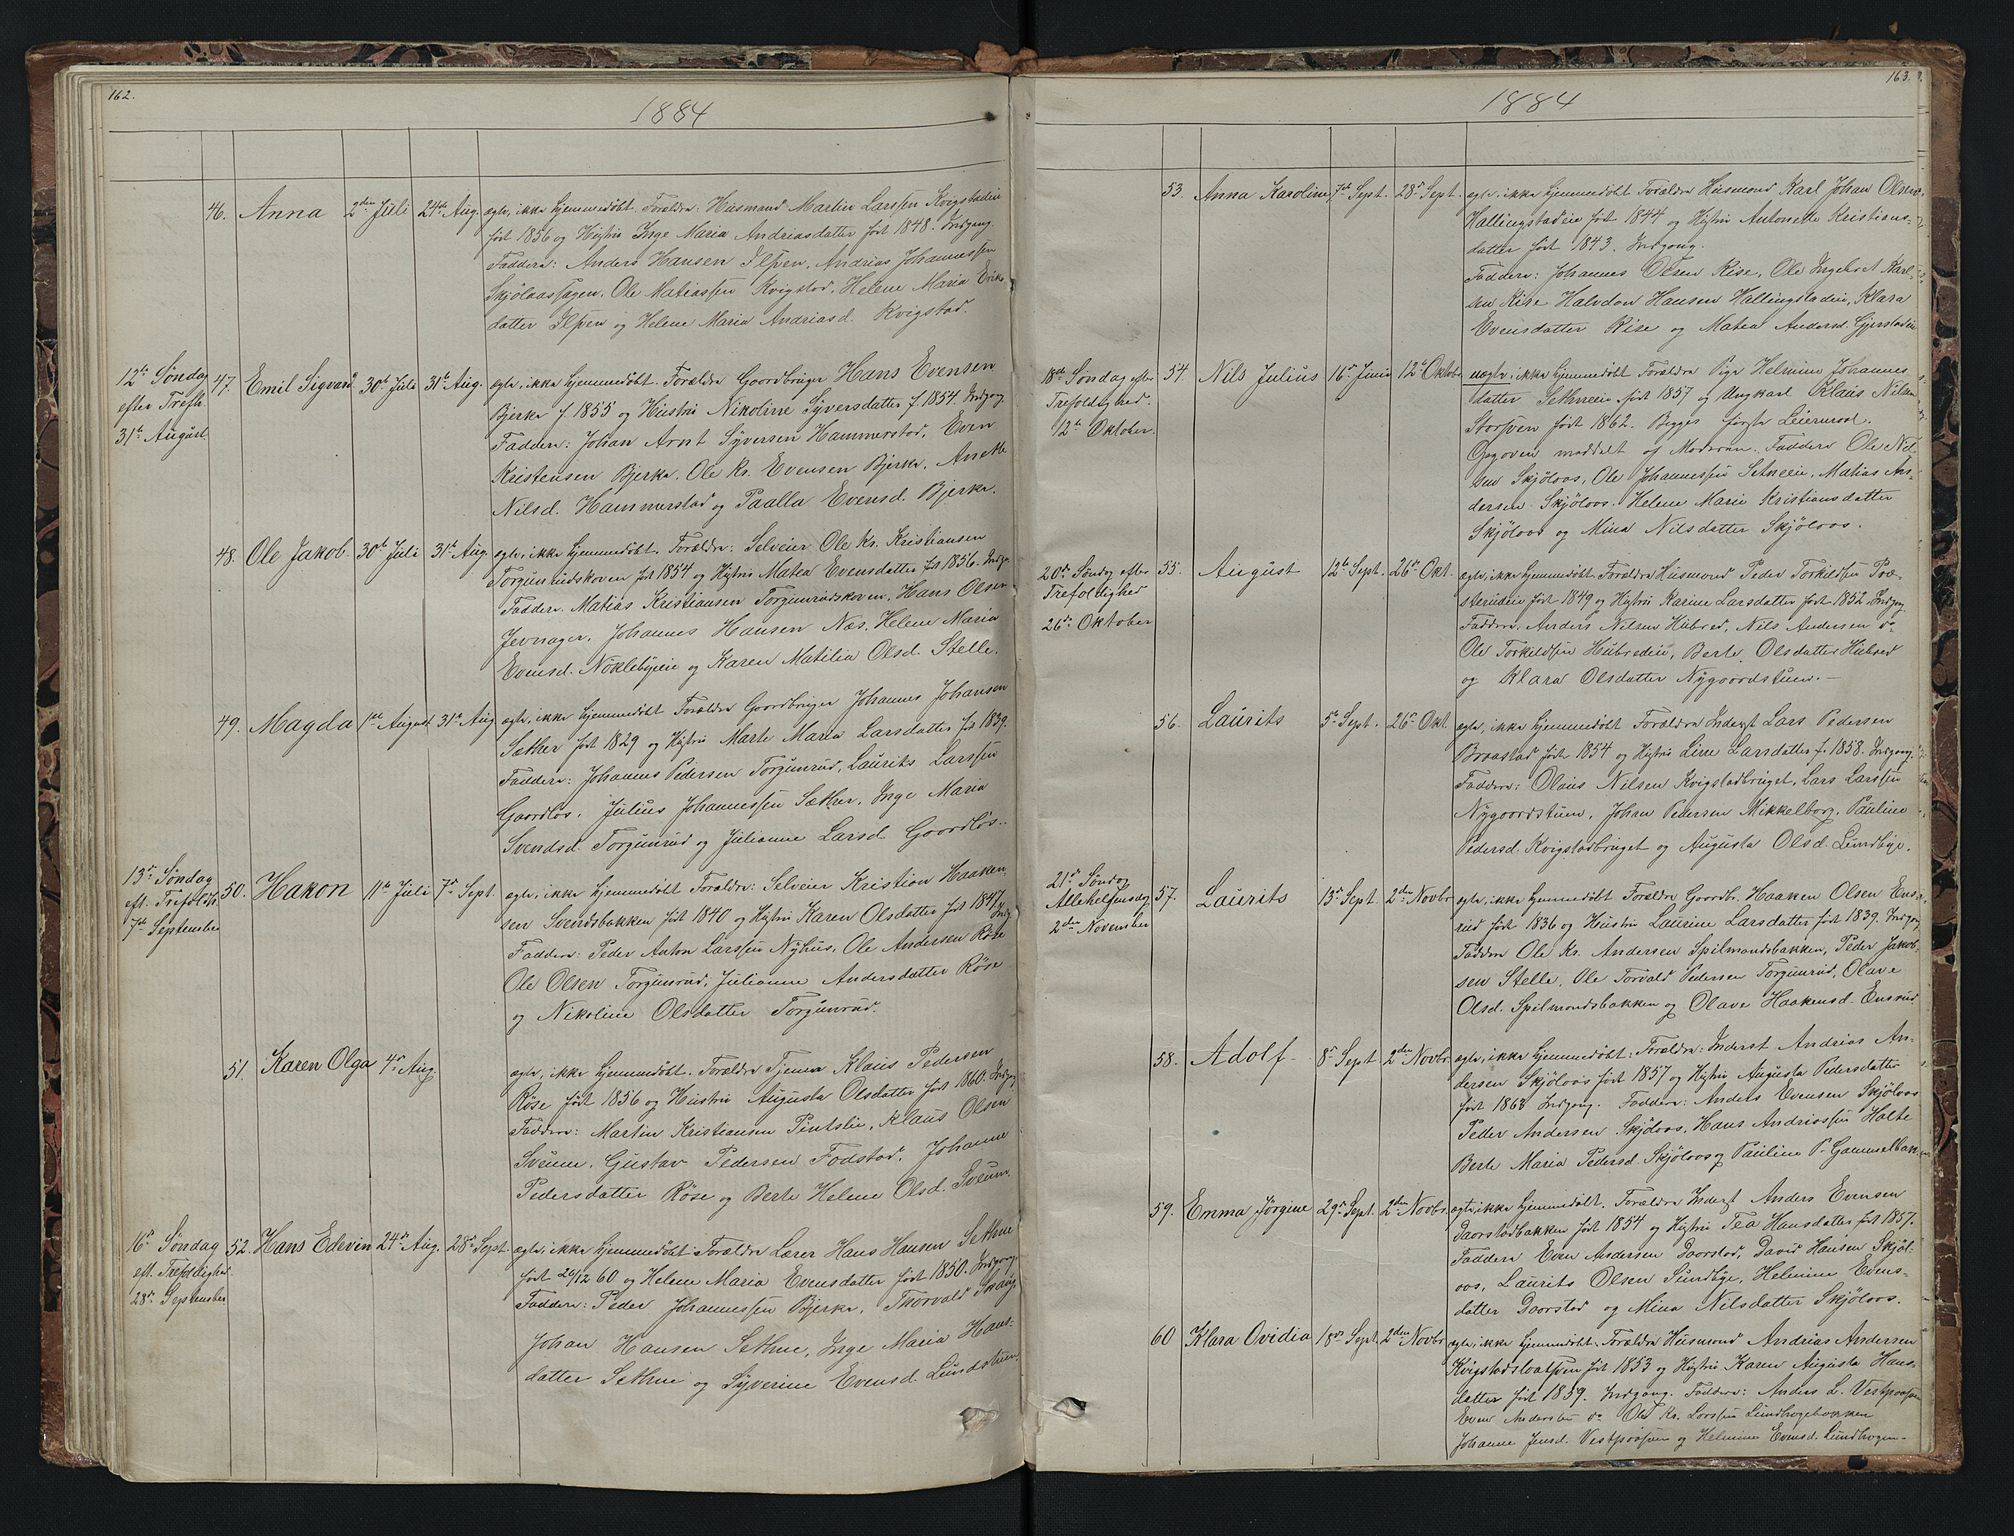 162.
1884
46. Anna 2den Juli 24de Aug. ægte, ikke hjemmedøbt. Forældre: Husmand Martin Larssen Kvigstadeie
født 1856 og Hustru Inge Maria Andriasdatter født 1848. Indgang.
Faddere: Anders Hansen Ilpen, Andrias Johannessen
Skjölaassagen, Ole Matiassen Kvigstad, Helene Maria Eriks
datter Ilpen og Helene Maria Andriasd. Kvigstad.
12te Søndag
efter Trefh.
31te August
47. Emil Sigvard 30te Juli 31te Aug. ægte, ikke hjemmedøbt. Forældre Gaardbruger Hans Evensen
Bjerke f. 1855 og Hustru Nikoline Syversdatter f. 1854. Indgang
Faddere: Johan Arnt Syversen Hammerstad, Even
Kristensen Bjerke, Ole Kr. Evensen Bjerke, Anette
Nilsd. Hammerstad og Paalla Evensd. Bjerke.
48. Ole Jakob. 30te Juli 31te Aug. ægte, ikke hjemmedøbt. Forældre: Selveier Ole Kr. Kristiansen
Torgunrudskoven født 1854 og Hustru Matea Evensdatter født 1856. Indg.
Faddere. Matias Kristiansen Torgunrudskoven, Hans Olsen
Jevnager, Johannes Hansen Næs, Helene Maria
Evensd. Nøklebyeie og Karen Matilia Olsd. Stelle.
49. Magda 1ste August 31te Aug. ægte, ikke hjemmedøbt Forældre Gaardbruger Johannes Johansen
Sæther født 1829 og Hustru Marte Maria Larsdatter født 1839.
Faddere: Johannes Pedersen Torgunrud, Lauriks Larssen
Gaardløs, Julius Johannessen Sæther, Inge Maria
Svendsd. Torgunrud og Julianne Larsd Gaardløs.
13de Søndag
eft. Trefoldh.
7de September
50. Hakon 11te Juli 7de Sept. ægte, ikke hjemmedøbt Forældre: Selveier Kristian Haaken-
sen Svendsbakken født 1840 og Hustru Karen Olsdatter født 1847. Indg
Faddere: Peder Anton Larssen Nyhus, Ole Andersen Røse
Ole Olsen Torgunrud, Julianne Andersdatter Røse
og Nikoline Olsdatter Torgunrud.
51. Karen Olga 4de Aug. ægte, ikke hjemmedøbt. Forældre Tjener Klaus Pedersen
Røse født 1856 og Hustru Augusta Olsdatter født 1860. Indgang
Faddere: Martin Kristiansen Pintslie, Klaus Olsen
Sveum, Gustav Pedersen Fodstad, Johanne
Pedersdatter Røse og Berte Helene Olsd. Sveum.
16de Søndag
eft. Trefoldighed
28de September
52. Hans Edevin 24de Aug. 28de Sept. ægte, ikke hjemmedøbt Forældre Lærer Hans Hansen Sethne
født 26/12 60 og Helene Maria Evensdatter født 1850. Indgang
Faddere: Peder Johannessen Bjerke, Thorvald Skaug
Johan Hansen Sethne, Inge Maria Hans-
datter Sethne og Syverine Evensd. Lundstuen.
163.
1884
53. Anna Karoline 7de Sept. 28de Sept. ægte, ikke hjemmedøbt Forældre Husmand Karl Johan Olsen
Hallingstadeie født 1844 og Hustru Antonette Kristians-
datter født 1843. Indgang.
Faddere: Johannes Olsen Rise, Ole Ingebret Karl-
sen Rise Halvdan Hansen Hallingstadeie, Klara
Evensdatter Rise og Matea Andersd. Gjerstadeie
18de Søndag efter
Trefoldighed.
12te Oktober.
54. Nils Julius 16de Juni 12te Oktobr uægte, ikke hjemmedøbt Forældre Pige Helmine Johannes
datter Sethneeie født 1857 og Ungkarl Klaus Nilsen
Storsveen født 1862. Begges første Leiermaal.
Opgaven meddelt af Moderen. Faddere Ole Nil-
sen Skjölaas, Ole Johannessen Setneeie, Matias An-
dersen Skjölaas, Helene Marie Kristiansdatter
Skjölaas og Mina Nilsdatter Skjölaas.
20de Søndag efter
Trefoldighed
26de Oktober
55. August 12te Sept. 26de Okt. ægte, ikke hjemmedøbt Forældre Husmand Peder Torkildsen Præ-
sterudeie født 1849 og Hustru Karine Larsdatter født 1852 Indgang.
Faddere. Anders Nilsen Hubred, Nils Andersen do
Ole Torkildsen Hubredeie, Berte Olsdatter Hubred
og Klara Olsdatter Nygaardstuen.
56. Laurits 5te Sept. 26de Okt ægte, ikke hjemmedøbt Forældre Inderst Lars Pedersen
Braastad født 1854 og Hustru Line Larsdatter f. 1858. Indgang.
Faddere: Olaus Nilsen Kvigstadbruget, Lars Larssen
Nygaardstuen, Johan Pedersen Mikkelborg, Pauline
Pedersd. Kvigstadbruget og Augusta Olsd. Lundbye.
21de Søndag
Allehelgensdag
2den November
57. Laurits 13de Sept 2den Novbr ægte, ikke hjemmedøbt Forældre Gaardbr. Haaken Olsen Ens-
rud født 1836 og Hustru Laurine Larsdatter født 1839. Indgang
Faddere Ole Kr. Andersen Spilmandsbakken, Peder Jakob-
sen Stelle, Ole Torvald Pedersen Torgunrud, Olave
Olsd. Spilmandsbakken og Olave Haakensd. Ensrud
58. Adolf 8de Sept 2den Novbr ægte, ikke hjemmedøbt: Forældre: Inderst Andrias An-
dersen Skjölaas født 1857 og Hustru Augusta Pedersdatter
født 1863 Indgang. Faddere: Anders Evensen Skjölaas
Peder Andersen Skjölaas, Hans Andriassen Holte
Berte Maria Pedersd. Skjölaas og Pauline P. Gammelbak
59. Emma Jørgine 29de Sept. 2den Novbr. ægte, ikke hjemmedøbt. Forældre Inderst Anders Evensen
Daarstadbakken født 1854 og Hustru Tea Hansdatter født 1857.
Faddere Even Andersen Daarstad, David Hansen Skjöl-
aas, Laurits Olsen Sundbye, Helmine Evens-
datter Daarstad og Mina Nilsdatter Skjölaas.
60 Klara Ovidia 18de Sept. 2den Novbr. ægte, ikke hjemmedøbt. Forældre Husmand Andrias Andersen
Kvigstadsloatpen født 1853 og Hustru Karen Augusta Hans-
datter født 1859. Indgang. Faddere: Anders L. Vestpaapen
Even Andersen do Ole Kr. Larssen Lundhagebakken
Johanne Jensd. Vestpaapen og Helmine Evensd. Lundhagen-